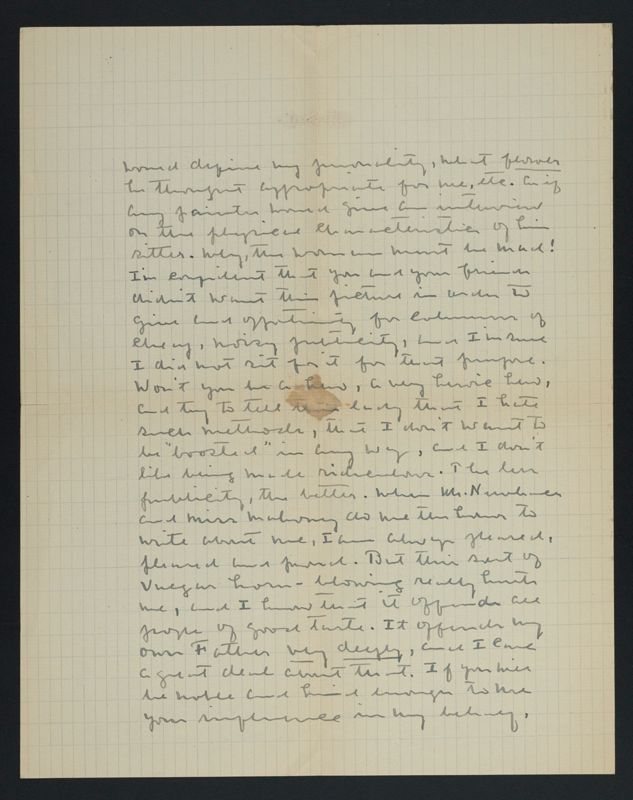 would define my personality, what flowers
he thought appropriate for me, etc. As if
any painter would give an interview
on the physical characteristics of his
sitter. Why, the woman must be mad!
I'm confident that you and your friends
didn't want this picture in order to
give and opportunity for columns of
cheap, noisy publicity, and I'm sure
I did not sit for it for that purpose.
Won't you be a hero, a very heroic hero,
and try to tell this lady that I hate
such methods, that I don't want to
be "boosted" in any way, and I don't
like being made ridiculous. The less
publicity, the better. When Mr. Newbranch
and Miss Mahoney do me the honor to
write about me, I am always pleased,
pleased and proud. But this sort of
vulgar horn-blowing really hurts
me, and I know that it offends all
people of good taste. It offends my
own Father very deeply, and I care
a great deal about that. If you will
be noble and kind enough to use
your influence in my behalf,